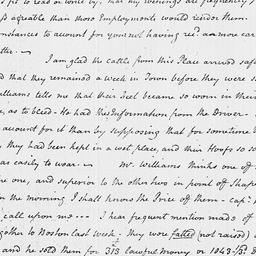 to read or write by, that my evenings are frequently
agreable than those Employments would render them.
cumstances to account for your not having rec'd an more ear
I am glad the cattle from this Place arrived safe
d that they remained a week in Town before they were
illiams tells me that their feet became so worn in their
as to bleed. He had this Information from the Driver.
account for it than by supposing that for sometime
they had been kept in a wet place, and their Hoofs so so
as easily to wear. Mr. Williams thinks one off
one, and superior to the other two in point off Shape
in the morning I shall know the Price off them
call upon me I hear frequent mention made off
gether to Boston last week. they were fatted (not raised)
and he sold them for 313 lawful money or 1043